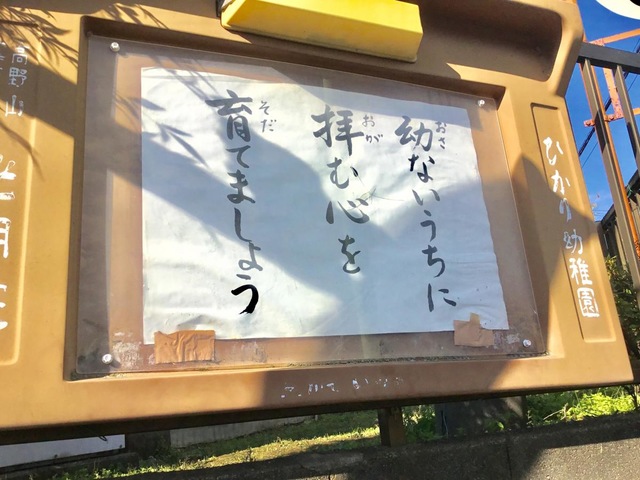 ひかり幼稚園
幼ないうちに
おさ
拝む心を
おが
育てましょう
そだ
高野山